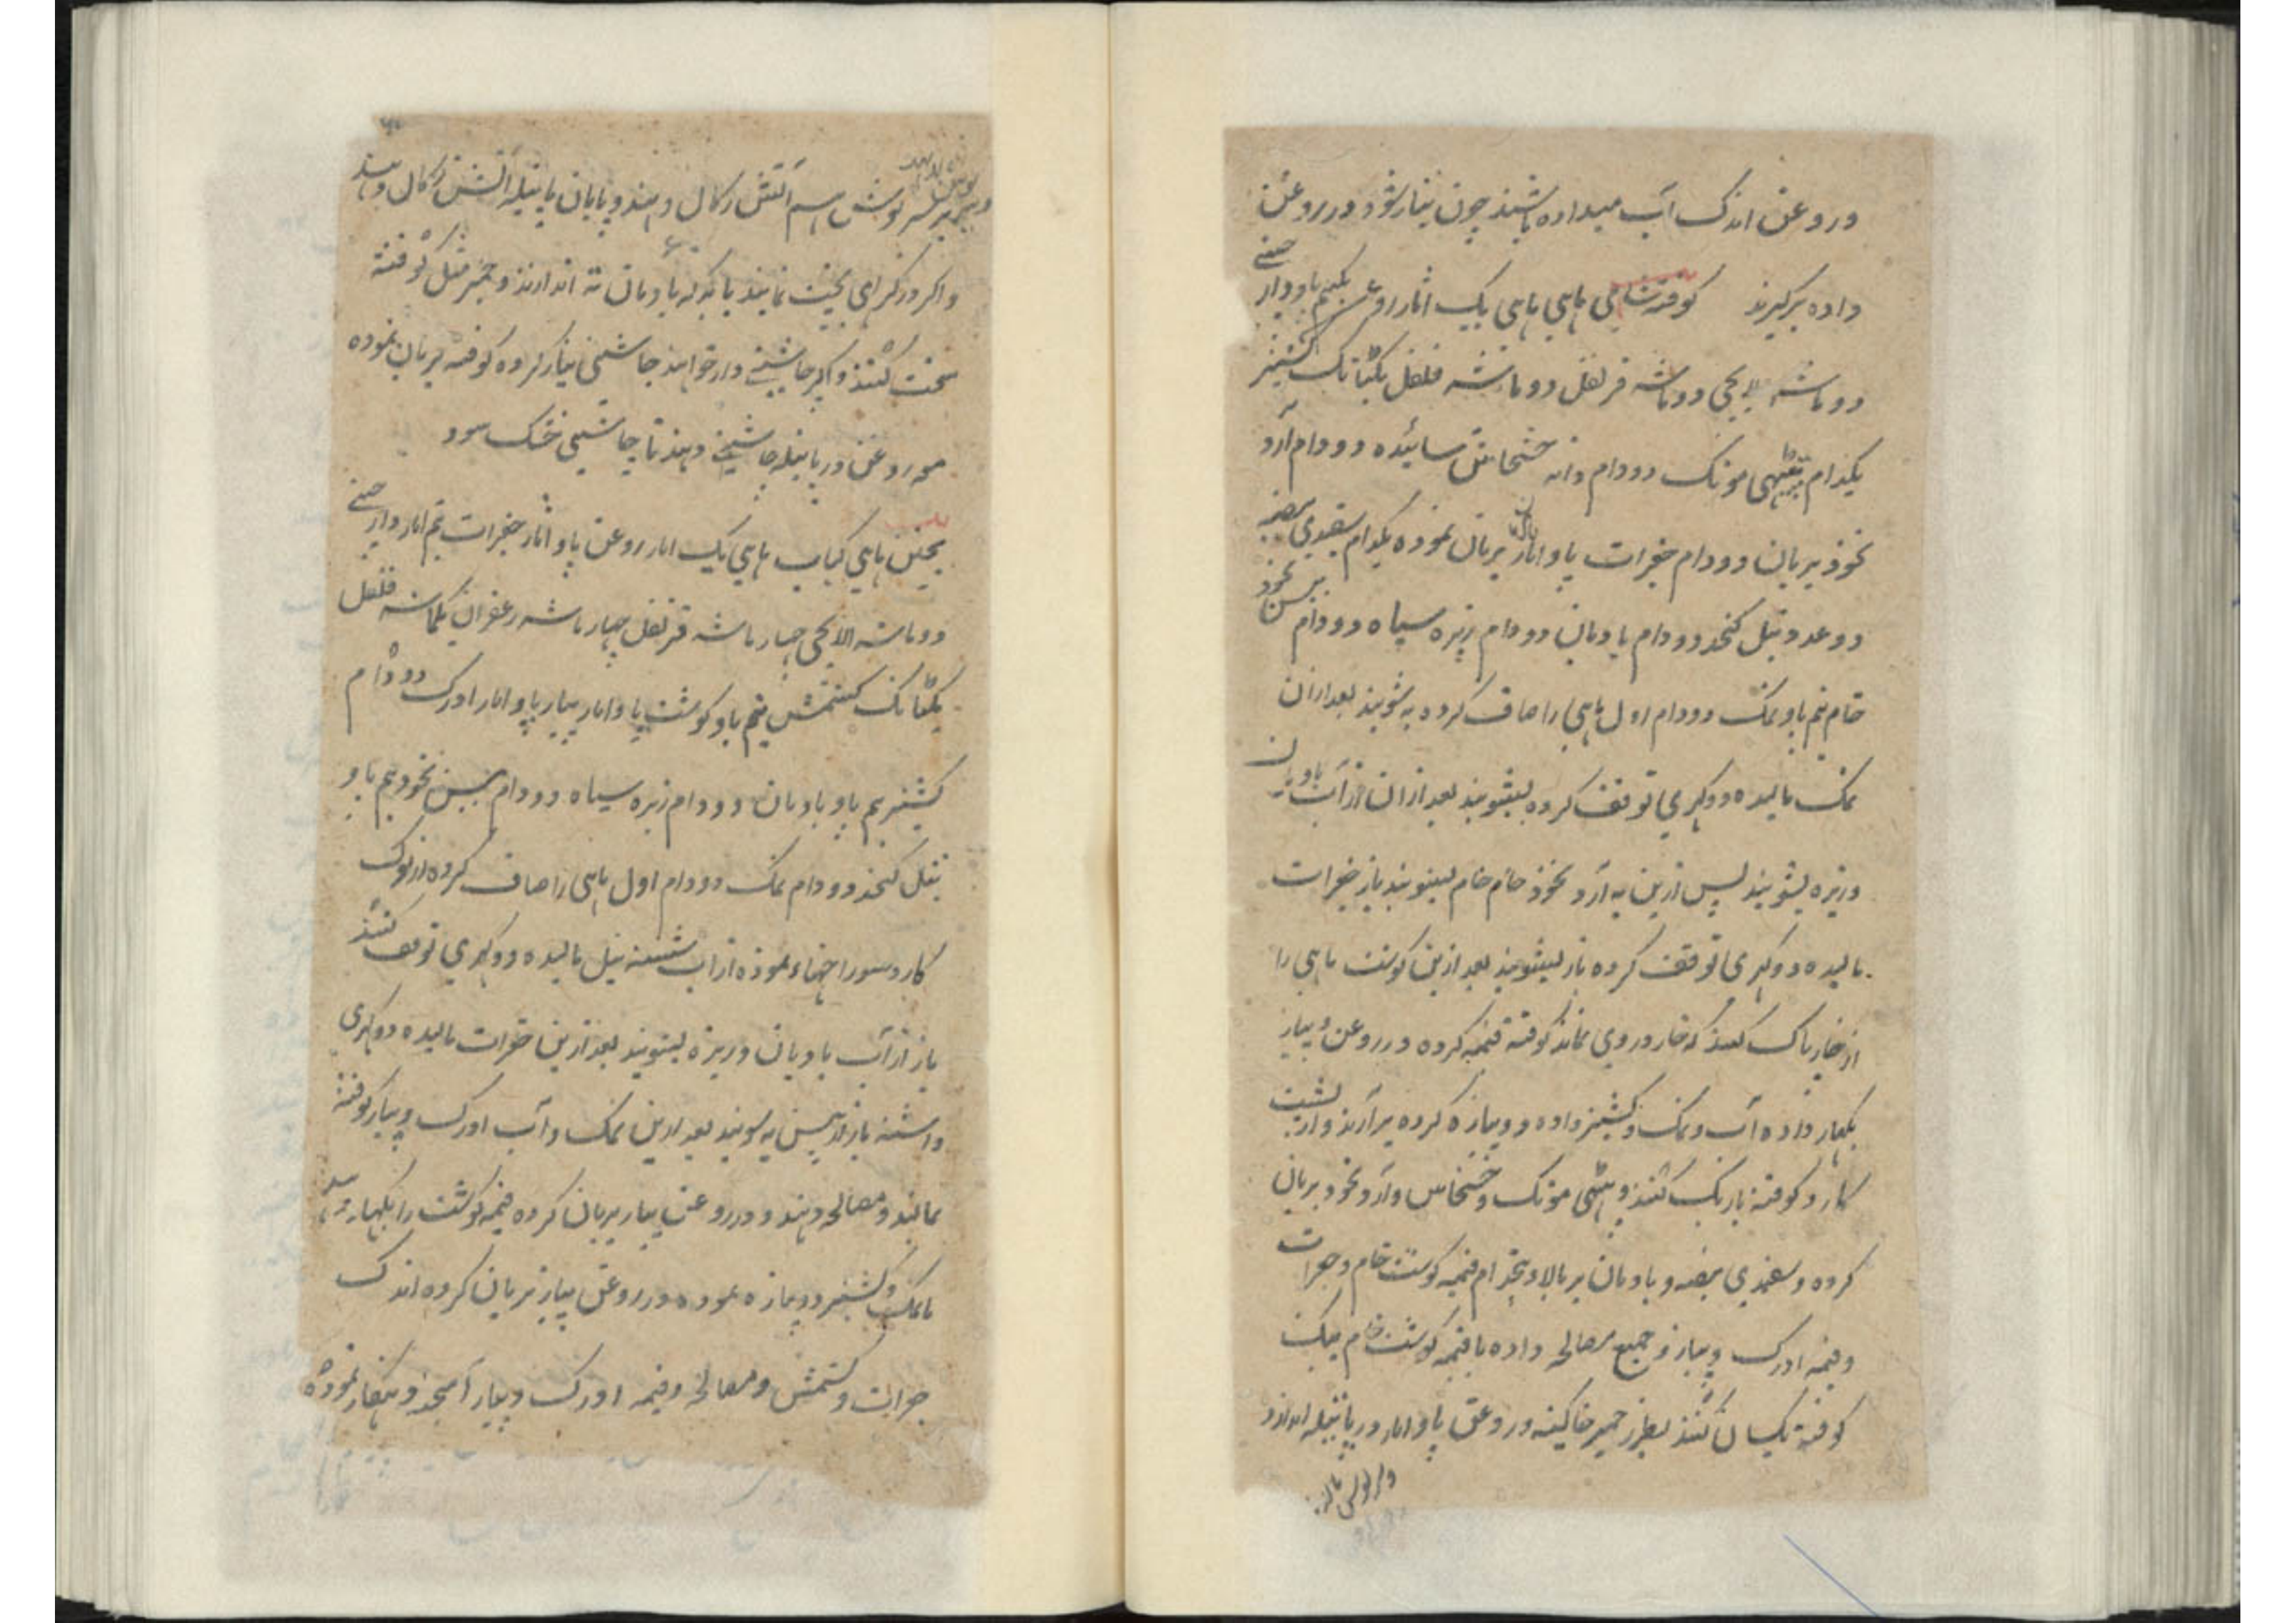 در روغن اندک آب میداده باشند چون تیار شود در روغن
داده برگیرند کوفته ماهی ماهی یک اثار روغن نیم پاو دارچینی
دو ماشه الایچی دو ماشه قرنفل دو ماشه فلفل یکتانک کشنیز
یکدام مونک دودام دانه خشخاش سائیده دودام آرد
نخود بریان دودام جغرات پاو اثار بریان نموده یکدام سفیدی بیضه
دو عدد تیل کنجد دودام بادیان دودام زیره سیاه دودام بیسن نخود
خام نیم پاو نمک دودام اول ماهی را صاف کرده به شویند بعد ازان
نمک مالیده دو گهری توقف کرده بشویند بعد ازان از آب بادیان
وزیره بشویند پس ازین به آرد نخود خام بشویند باز جغرات
مالیده دو گهری توقف کرده باز بشویند بعد ازین گوشت ماهی را
از خار پاک کنند که خار در وی نماند کوفته قیمه کرده در روغن و پیاز
بگهار داده آب و نمک و کشنیز داده دوپیازه کرده برآرند و از پشت
کارد کوفته باریک کنند و مونک و خشخاش و آرد نخود بریان
کرده و سفیدی بیضه و بادیان بر بالا قیمه گوشت خام و جغرات
وقیمه ادرک و پیاز و جمیع مصالح داده با قیمه گوشت خام
کوفته یکسان کنند بطرز خمیر خاگینه و روغن پاو اثار در پاتیله اندازند
بر سرپوش آتش زکال دهند و پایان پاتیله آتش زکال دهند
واگر در کراهی پخت نمایند با بادیان ته اندازند و خمیر مثل کوفته
سخت کنند و اگر چاشنی دار خواهند چاشنی تیار کرده کوفته بریان نموده
روغن در پاتیله چاشنی دهند تا چاشنی خشک شود
ماهی کباب ماهی یک اثار روغن پاو اثار جغرات نیم اثار دارچینی
دو ماشه الایچی چهار ماشه قرنفل چهار ماشه زعفران یکماشه فلفل
یکتانک کشمش نیم پاو گوشت پاو اثار پیاز پاو اثار ادرک دودام
کشنیز نیم پاو بادیان دودام زیره سیاه دودام بیسن نخود نیم پاو
تیل کنجد دودام نمک دودام اول ماهی را صاف کرده از نوک
کارد سوراخها نموده از آب شسته تیل مالیده دو گهری توقف کنند
باز از آب بادیان وزیره بشویند بعد ازین جغرات مالیده دو گهری
داشته باز از بیسن به شویند بعد ازین نمک و آب ادرک و پیاز کوفته
بمالند و مصالح دهند و در روغن پیاز بریان کرده قیمه گوشت را بگهار
با نمک و کشنیز دوپیازه نموده در روغن پیاز بریان کرده اندک
جغرات و کشمش و مصالح و قیمه ادرک و پیاز آمیخته نموده